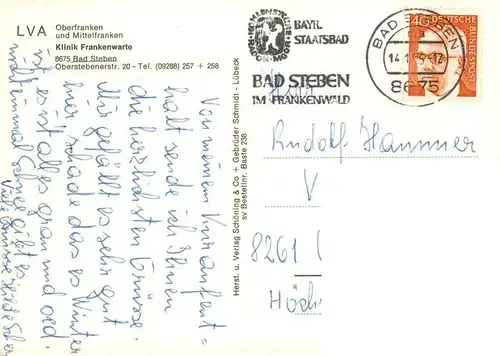 LVA Oberfranken
und Mittelfranken
Klinik Frankenwarte
8675 Bad Steben
Oberstebenerstr. 20 - Tel. (09288) 257 + 258
Von meinem Kuraufent=
halt sende ich Ihnen
die herzlichsten Grüsse.
Mir gefällt es sehr gut
hier schade das es Winter
ist es ist alles grau und oed.
nicht einmal Schnee gibt es
Viele Grüsse Hilde
Herst. u. Verlag Schöning & Co + Gebrüder Schmidt - Lübeck
sv Bestellnr. Baste 238
BAYR.
STAATSBAD
BAD STEBEN
IM FRANKENWALD
BAD STEBEN
14.1
-12
8675
40 DEUTSCHE
BUNDESPOST
Rudolf Hammer
V
8261
Höch